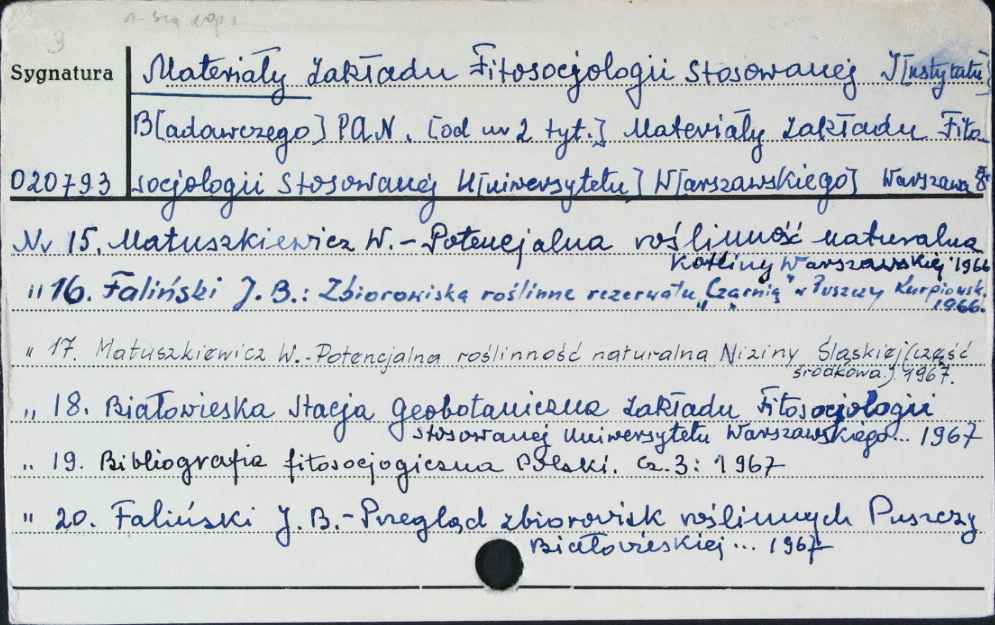 Sygnatura
Materiały Zakładu Fitosocjologii Stosowanej I[nstytutu]
B[adawczego] PAN. [od nr 2 tyt.] Materiały Zakładu Fito
020793 socjologii Stosowanej U[niwersytetu] W[arszawskiego] Warszawa 8°
Nr 15. Matuszkiewicz W. - Potencjalna roślinność naturalna
Kotliny Warszawskiej 1966
" 16. Faliński J. B.: Zbiorowiska roślinne rezerwatu „Czarnia" w Puszczy Kurpiowsk.
1966.
" 17. Matuszkiewicz W. - Potencjalna roślinność naturalna Niziny Śląskiej (część
środkowa.) 1967.
„ 18. Białowieska Stacja Geobotaniczna Zakładu Fitosocjologii
Stosowanej Uniwersytetu Warszawskiego... 1967
" 19. Bibliografia fitosocjogiczna Polski. Cz. 3: 1967
" 20. Faliński J. B. - Przegląd zbiorowisk roślinnych Puszczy
Białowieskiej ... 1967